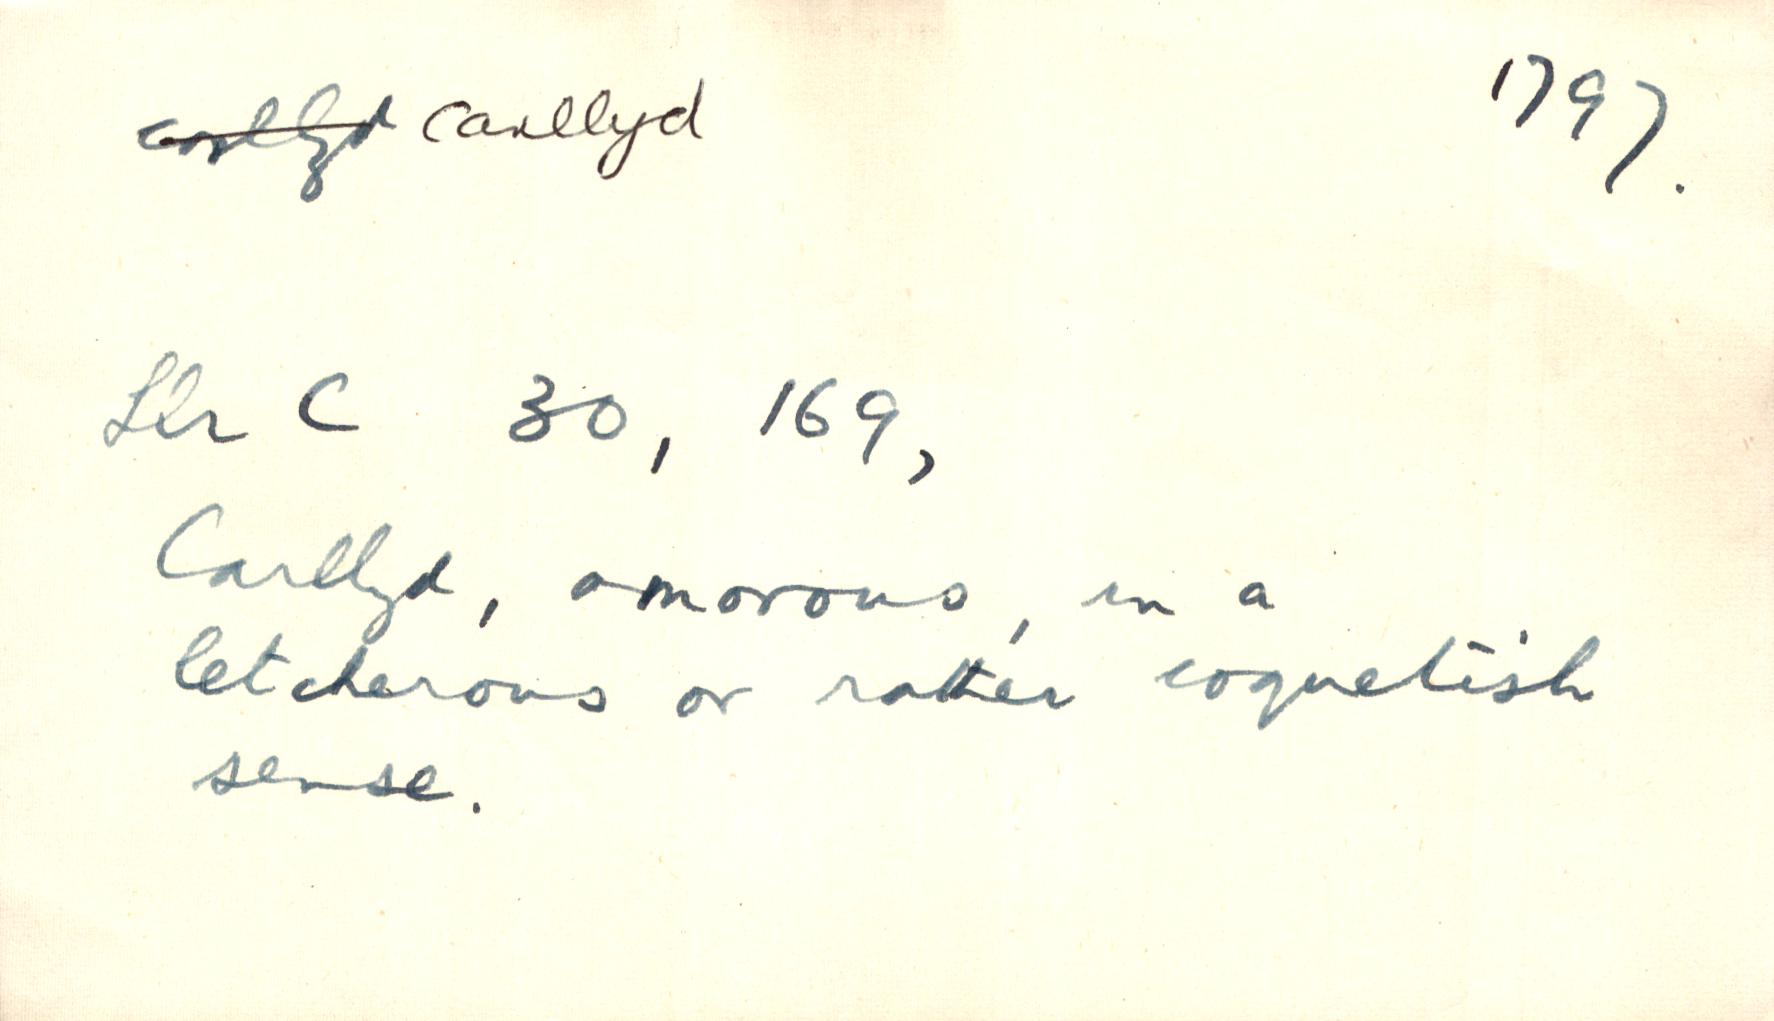 carllyd carllyd 1797.
Llr C 30, 169,
Carllyd, amorous, in a
letcherous or rather coquetish
sense.